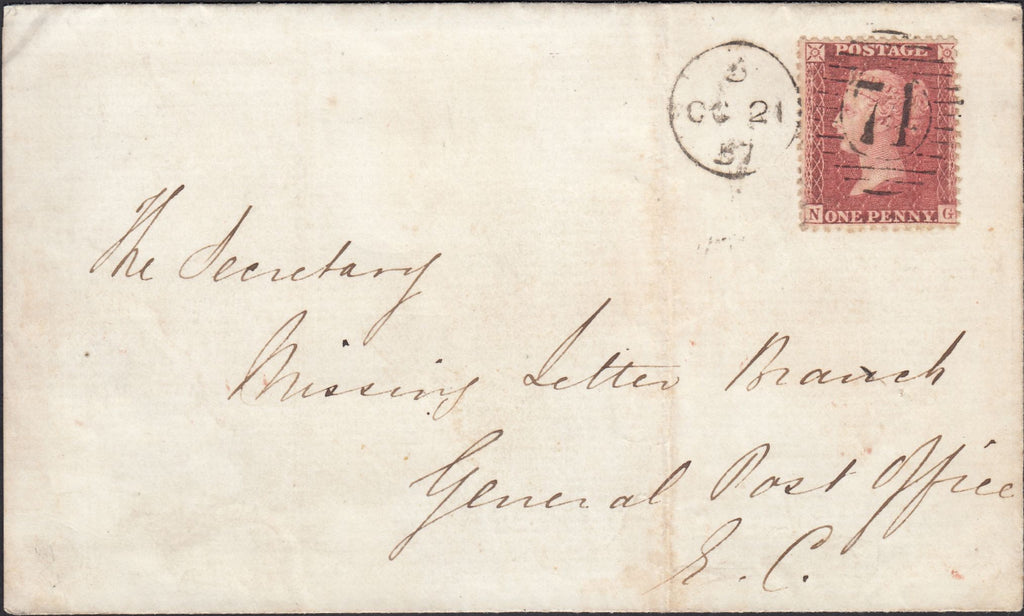 POSTAGE
OC 21
57
71
N ONE PENNY. G
The Secretary
Missing Letter Branch
General Post Office
E. C.